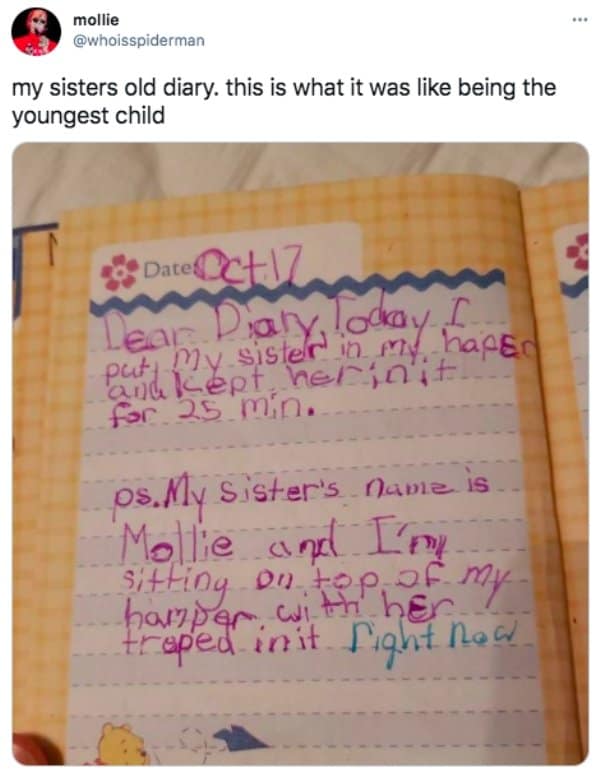 mollie
@whoisspiderman
my sisters old diary. this is what it was like being the
youngest child
Date: Oct.17
Dear Diary, Today I
put my sister in my haper
and kept her in it
for 25 min.
ps. My sister's name is
Mollie and I'm
sitting on top of my
hamper with her
traped in it right now